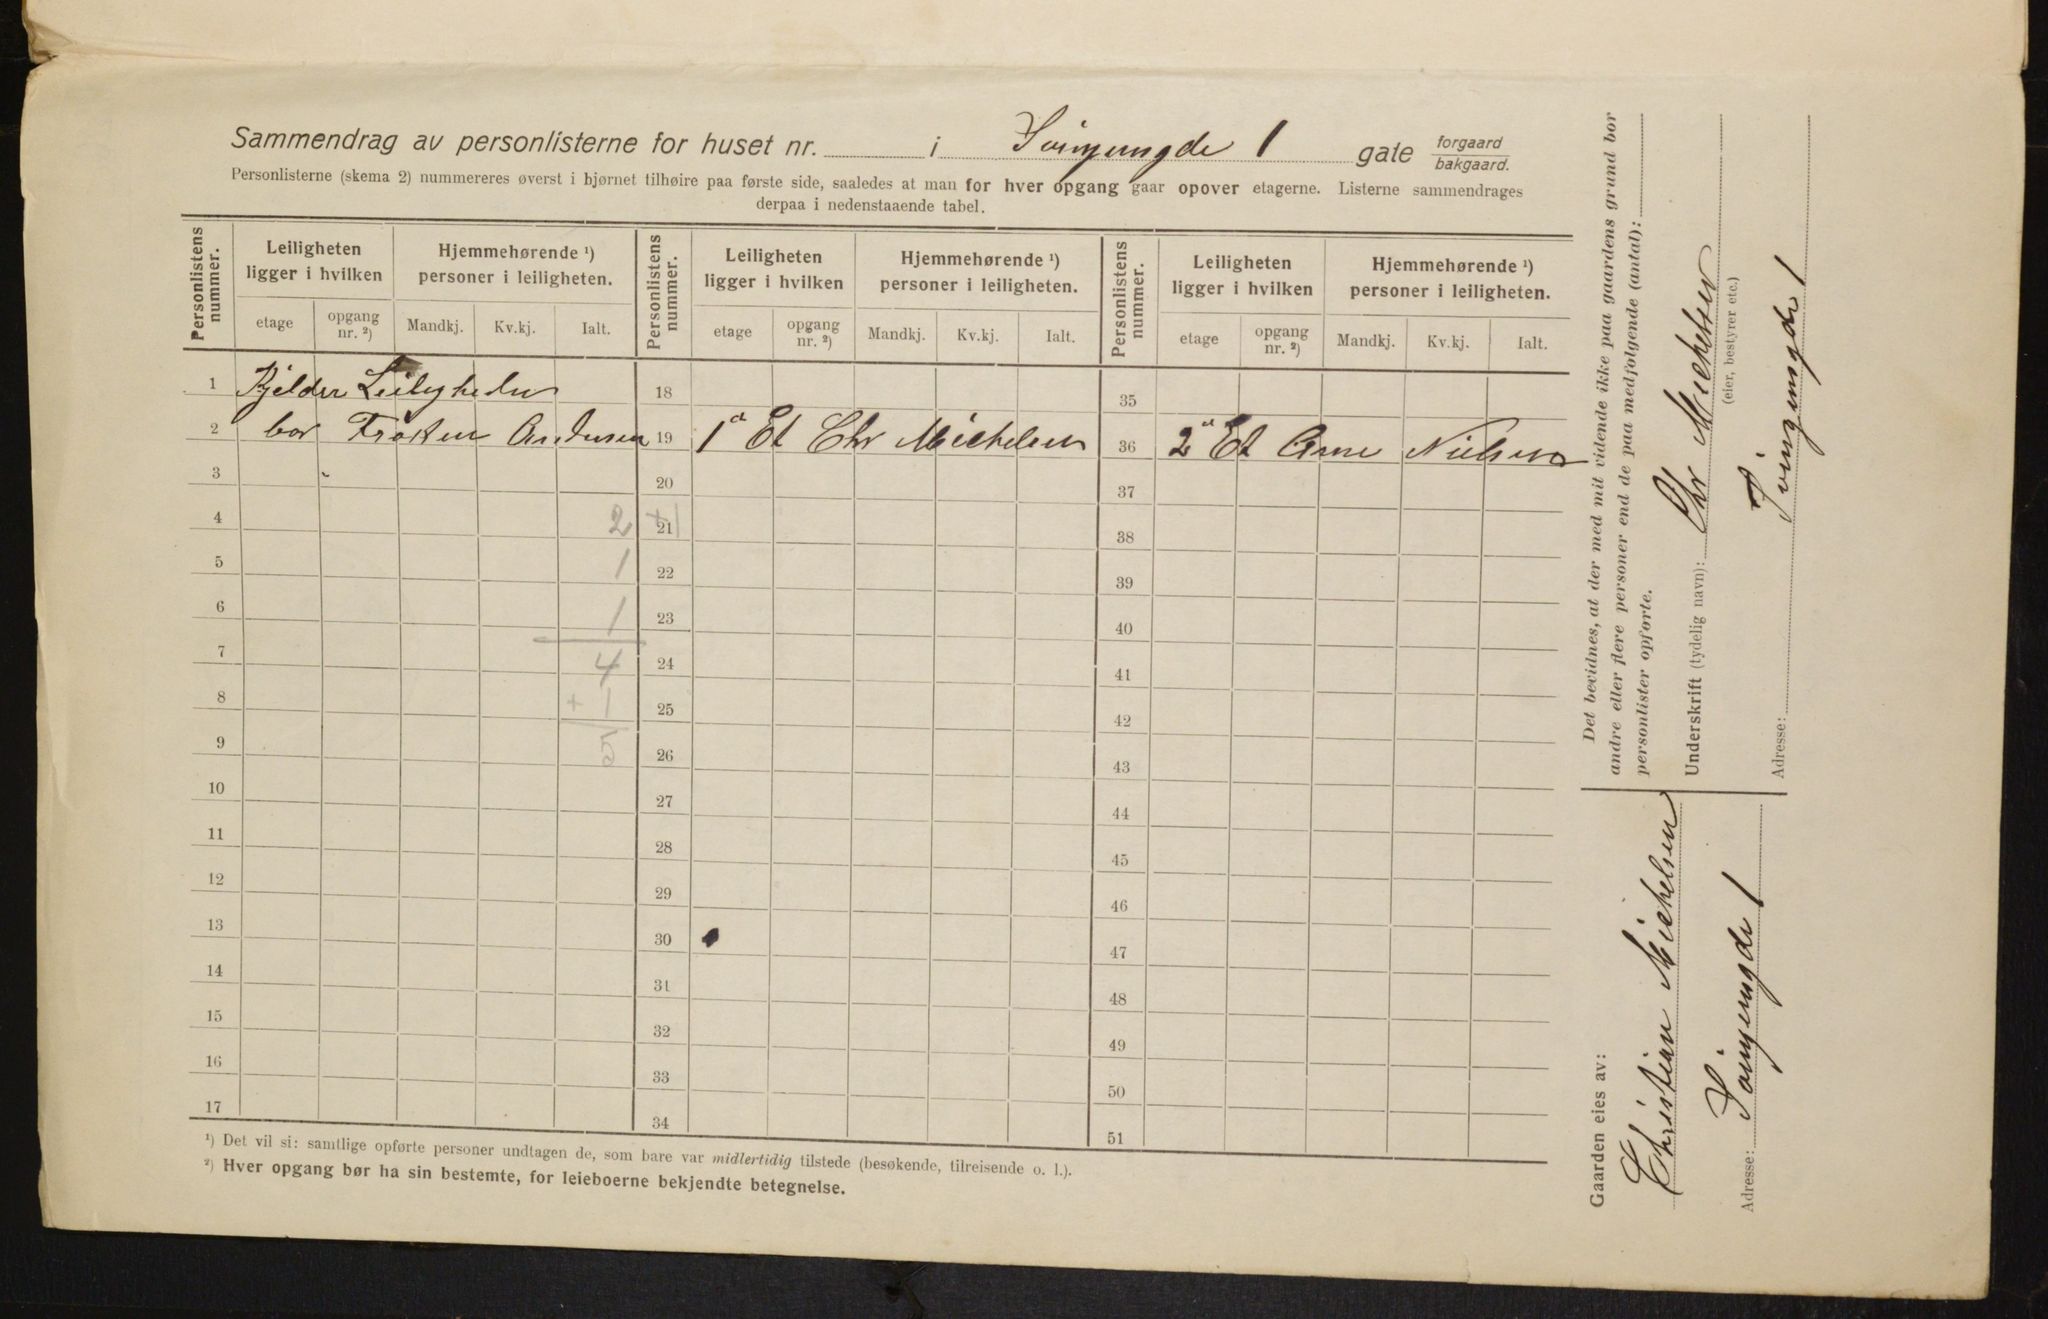 Sammendrag av personlisterne for huset nr. i Svingensgde 1 gate forgaard bakgaard.
Personlisterne (skema 2) nummereres øverst i hjørnet tilhøire paa første side, saaledes at man for hver opgang gaar opover etagerne. Listerne sammendrages
derpaa i nedenstaaende tabel.
Personlistens nummer. Leiligheten ligger i hvilken Hjemmehørende ¹) personer i leiligheten. Personlistens nummer. Leiligheten ligger i hvilken Hjemmehørende ¹) personer i leiligheten. Personlistens nummer. Leiligheten ligger i hvilken Hjemmehørende ¹) personer i leiligheten.
etage opgang nr. ²) Mandkj. Kv.kj. Ialt. etage opgang nr. ²) Mandkj. Kv.kj. Ialt. etage opgang nr. ²) Mandkj. Kv.kj. Ialt.
1 Kjelder Leiligheden 18 35
2 bor Frøken Andersen 19 1ᵈ Et Chr Michelsen 36 2ᵈ Et Arne Nielsen
3 20 37
4 2 21 +1 38
5 1 22 39
6 1 23 40
7 4 24 41
8 + 1 25 42
9 5 26 43
10 27 44
11 28 45
12 29 46
13 30 47
14 31 48
15 32 49
16 33 50
17 34 51
¹) Det vil si: samtlige opførte personer undtagen de, som bare var midlertidig tilstede (besøkende, tilreisende o. l.).
²) Hver opgang bør ha sin bestemte, for leieboerne bekjendte betegnelse.
Det bevidnes, at der med mit vidende ikke paa gaardens grund bor
andre eller flere personer end de paa medfølgende (antal):
personlister opførte.
Underskrift (tydelig navn): Chr Michelsen
(eier, bestyrer etc.)
Adresse: Svingensgde 1
Gaarden eies av:
Christian Michelsen
Adresse: Svingensgde 1